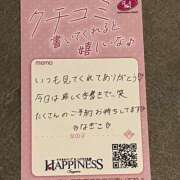 クチコミ
書いてくれると
嬉しいなぁ
memo
いつも見てくれてありがとう♡
今日は珍しく手書きで、笑
たくさんのご予約お待ちしてます♡
HAPPINESS